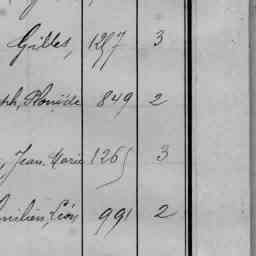 Gilles, 1257 3
ph, Plonïde 849 2
, Jean Marie 1265 3
milien, Léon 991 2